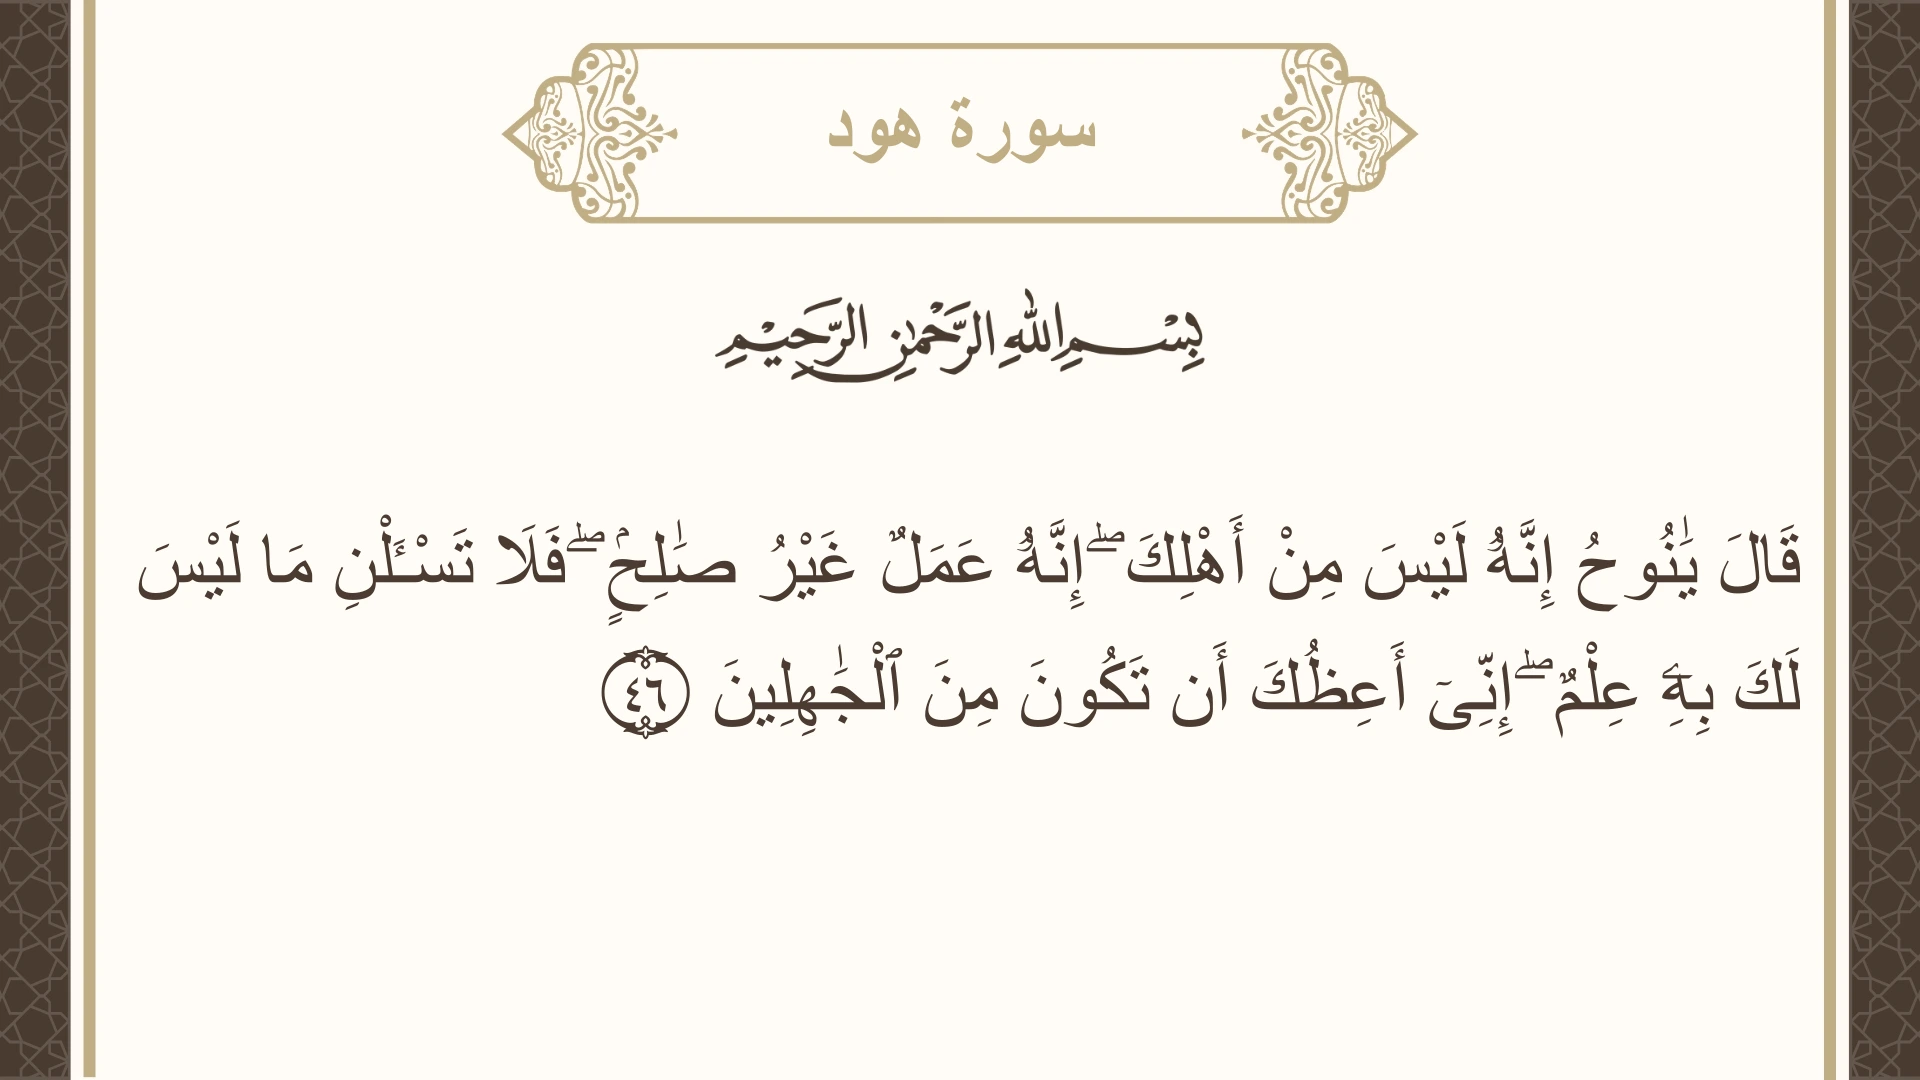 سورة هود
بِسْمِ اللهِ الرَّحْمٰنِ الرَّحِيْمِ
قَالَ يَٰنُوحُ إِنَّهُۥ لَيْسَ مِنْ أَهْلِكَ ۖ إِنَّهُۥ عَمَلٌ غَيْرُ صَٰلِحٍۢ ۖ فَلَا تَسْـَٔلْنِ مَا لَيْسَ
لَكَ بِهِۦ عِلْمٌ ۖ إِنِّىٓ أَعِظُكَ أَن تَكُونَ مِنَ ٱلْجَٰهِلِينَ ٤٦